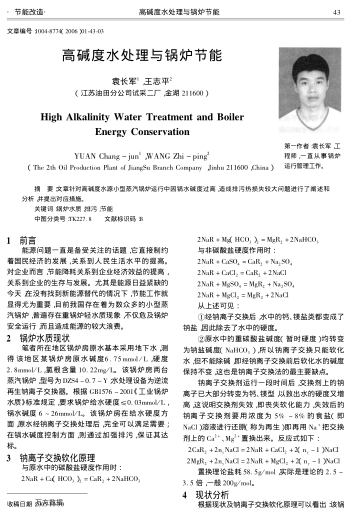 · 节能改造·
高碱度水处理与锅炉节能
43
文章编号:1004-8774(2006)01-43-03
高碱度水处理与锅炉节能
袁长军¹,王志平²
(江苏油田分公司试采二厂,金湖 211600)
High Alkalinity Water Treatment and Boiler
Energy Conservation
YUAN Chang-jun¹,WANG Zhi-ping²
(The 2th Oil Production Plant of JiangSu Branch Company,Jinhu 211600,China)
第一作者:袁长军,工
程师,一直从事锅炉
运行管理工作。
摘 要:文章针对高碱度水源小型蒸汽锅炉运行中因锅水碱度过高,造成排污热损失较大问题进行了阐述和
分析,并提出对应措施。
关键词:锅炉水质;排污;节能
中图分类号:TK227.8 文献标识码:B
1 前言
能源问题一直是备受关注的话题,它直接制约
着国民经济的发展,关系到人民生活水平的提高。
对企业而言,节能降耗关系到企业经济效益的提高,
关系到企业的生存与发展。尤其是能源日益紧缺的
今天,在没有找到新能源替代的情况下,节能工作就
显得尤为重要,目前我国存在着为数众多的小型蒸
汽锅炉,普遍存在重锅炉轻水质现象,不仅危及锅炉
安全运行,而且造成能源的较大浪费。
2 锅炉水质现状
笔者所在地区锅炉房原水基本采用地下水,测
得该地区某锅炉房原水碱度6.75mmol/L,硬度
2.8mmol/L,氯根含量10.22mg/L。该锅炉房两台
蒸汽锅炉,型号为DZS4-0.7-Y,水处理设备为逆流
再生钠离子交换器。根据GB1576-2001《工业锅炉
水质》标准规定,要求锅炉给水硬度≤0.03mmol/L,
锅水碱度6~26mmol/L。该锅炉房在给水硬度方
面,原水经钠离子交换处理后,完全可以满足需要;
在锅水碱度控制方面,则通过加强排污,保证其达
标。
3 钠离子交换软化原理
与原水中的碳酸盐硬度作用时:
2NaR+Ca(HCO₃)₂=CaR₂+2NaHCO₃
收稿日期:
2NaR+Mg(HCO₃)₂=MgR₂+2NaHCO₃
与非碳酸盐硬度作用时:
2NaR+CaSO₄=CaR₂+Na₂SO₄
2NaR+CaCl₂=CaR₂+2NaCl
2NaR+MgSO₄=MgR₂+Na₂SO₄
2NaR+MgCl₂=MgR₂+2NaCl
从上述可见:
①经钠离子交换后,水中的钙、镁盐类都变成了
钠盐,因此除去了水中的硬度。
②原水中的重碳酸盐碱度(暂时硬度)均转变
为钠盐碱度(NaHCO₃),所以钠离子交换只能软化
水,但不能除碱,即经钠离子交换前后软化水的碱度
保持不变,这也是钠离子交换法的最主要缺点。
钠离子交换剂运行一段时间后,交换剂上的钠
离子已大部分转变为钙、镁型,以致出水的硬度又增
高,这说明交换剂失效,即丧失软化能力,失效后的
钠离子交换剂要用浓度为5%~8%的食盐(即
NaCl)溶液进行还原(称为再生)即再用Na⁺把交换
剂上的Ca²⁺、Mg²⁺置换出来。反应式如下:
2CaR₂+2nₓNaCl=2NaR+CaCl₂+2(nₓ-1)NaCl
2MgR₂+2nₓNaCl=2NaR+MgCl₂+2(nₓ-1)NaCl
置换理论盐耗58.5g/mol,实际是理论的2.5~
3.5倍,一般200g/mol。
4 现状分析
根据现状及钠离子交换软化原理可以看出:该锅